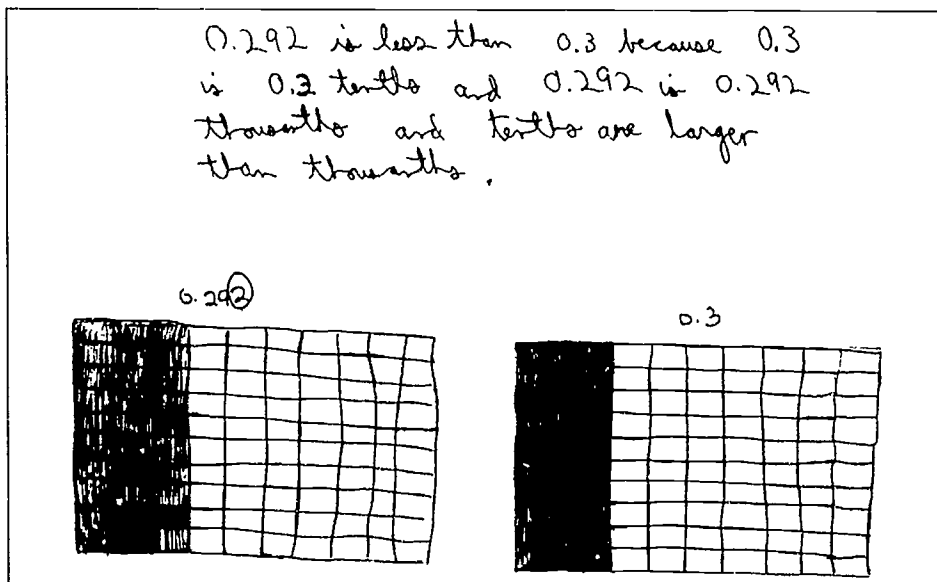 0.292 is less than 0.3 because 0.3
is 0.3 tenths and 0.292 is 0.292
thousanths and tenths are larger
than thousanths.
0.292
0.3